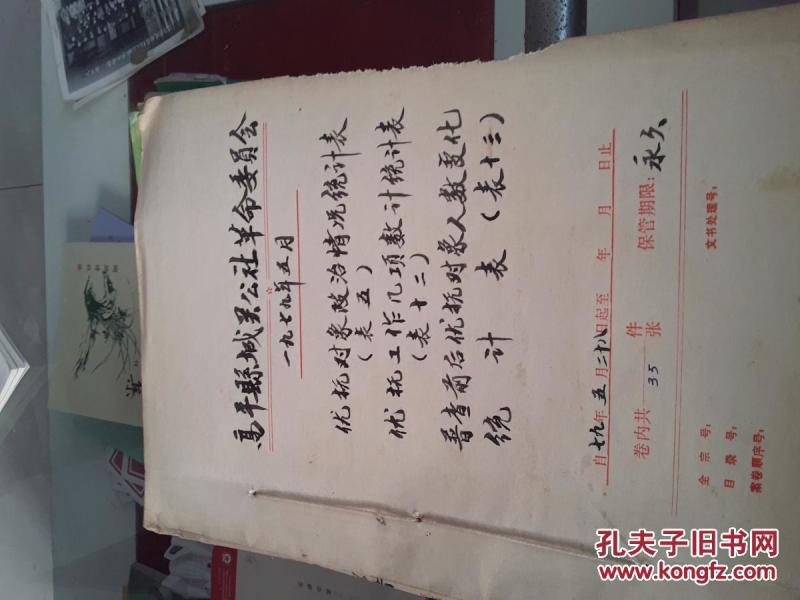 高平縣城关公社革命委員会
一九七九年五月
优抚对象政治情况统计表
(表五)
优抚工作几项数计统计表
(表十二)
普查前后优抚对象人数变化
统计表(表十三)
自七九年五月二十八日起至 年 月 日止
卷内共 35 件张 保管期限：永久
全宗号：
目录号：
案卷顺序号：
文书处理号：
孔夫子旧书网
www.kongfz.com